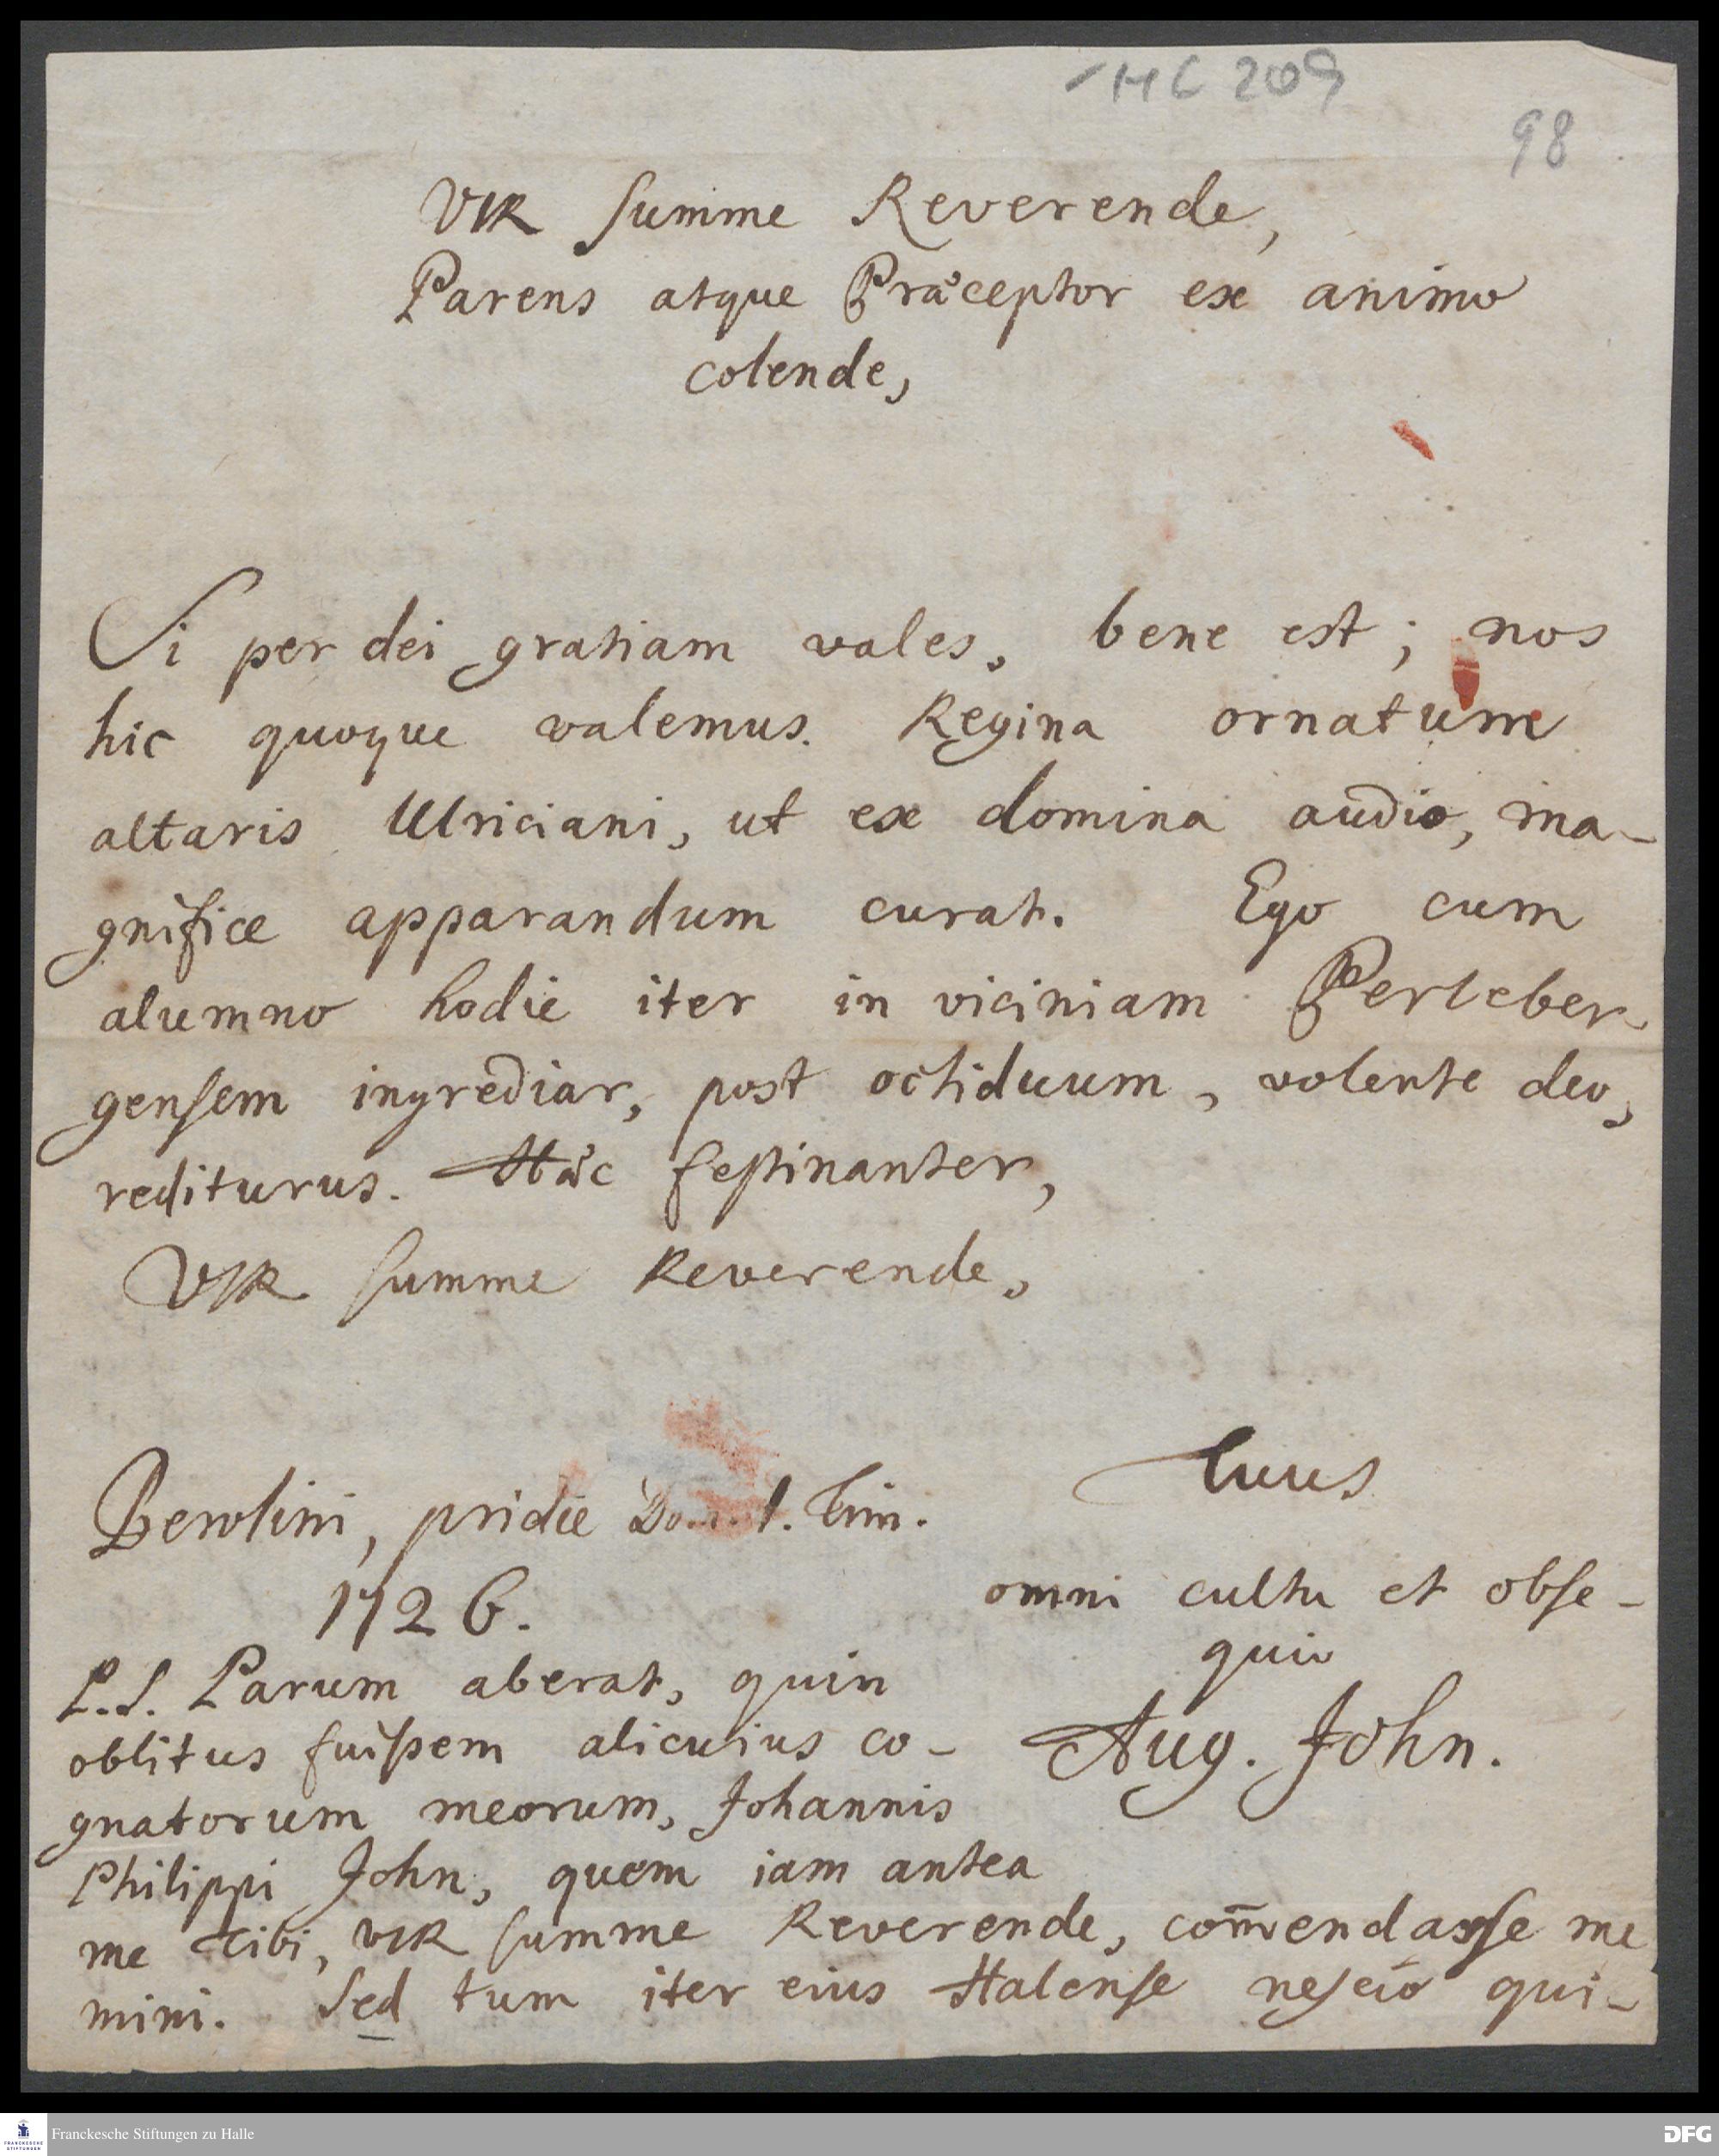 HC 209
98
VIR summe Reverende,
Parens atque Præceptor ex animo
colende,
Si per dei gratiam vales, bene est; nos
hic quoque valemus. Regina ornatum
altaris Ulriciani, ut ex domina audio, ma-
gnifice apparandum curat. Ego cum
alumno hodie iter in viciniam Perleber-
gensem ingrediar, post octiduum, volente deo,
rediturus. Hæc festinanter,
VIR summe Reverende,
Tuus
Berolini, pridie Dom. 1. Trin.
1726.
omni cultu et obse-
quio
Aug. John.
P.S. Parum aberat, quin
oblitus fuissem alicuius co-
gnatorum meorum, Johannis
Philippi John, quem iam antea
me tibi, VIR summe Reverende, com̅endasse me
mini. Sed tum iter eius Halense nescio qui-
Franckesche Stiftungen zu Halle
FRANCKESCHE
STIFTUNGEN
DFG